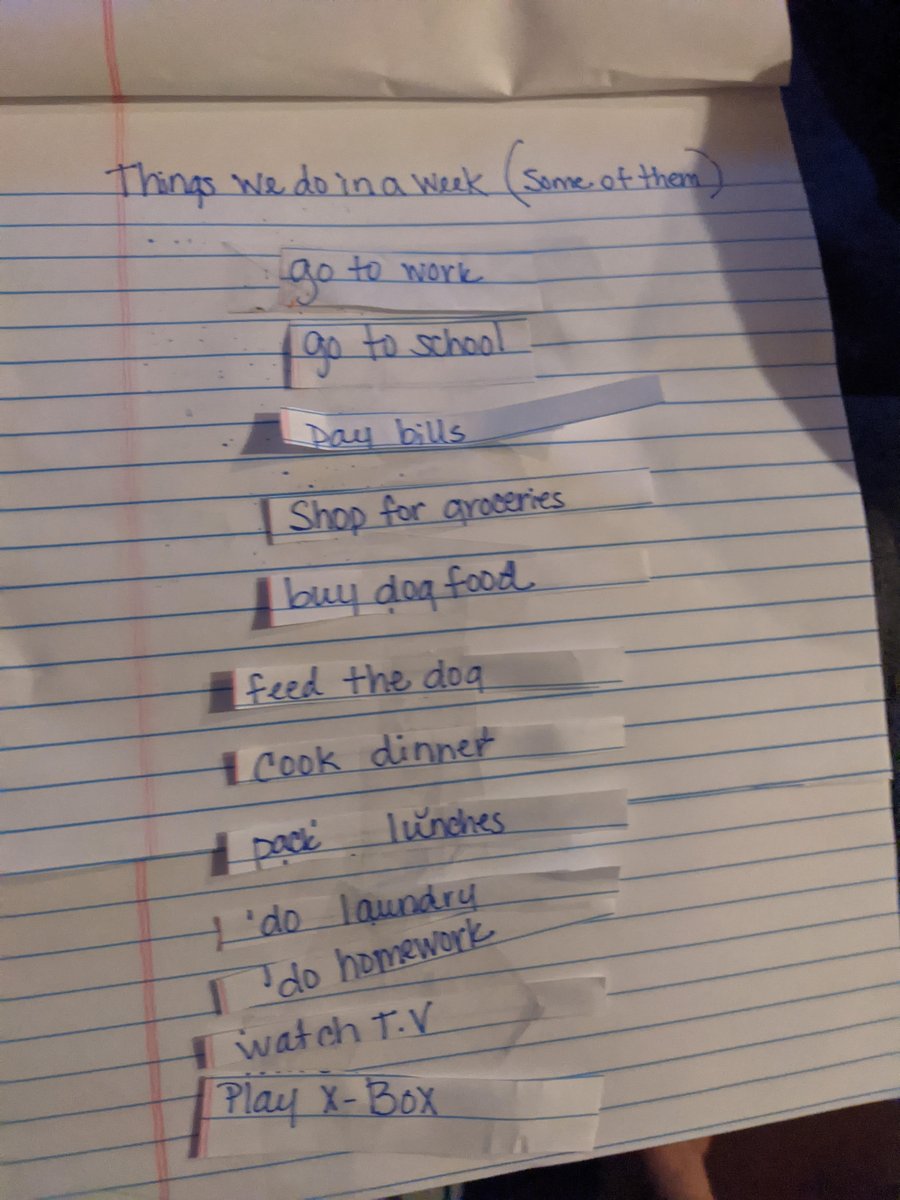 Things we do in a week (Some of them)
go to work
go to school
pay bills
Shop for groceries
buy dog food
feed the dog
Cook dinner
pack lunches
do laundry
do homework
watch T.V
Play X-Box